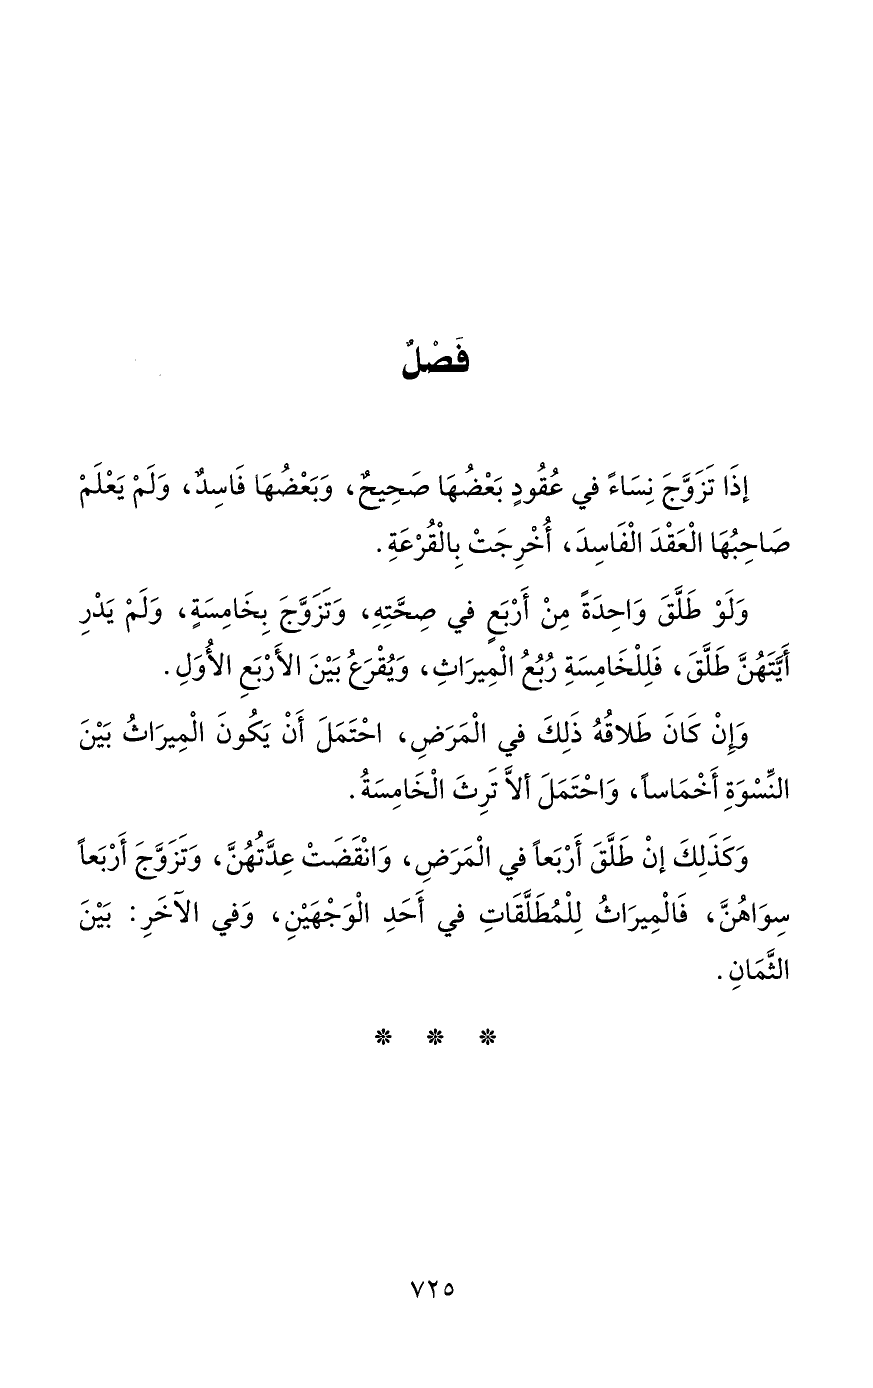 فَصْلٌ
إِذَا تَزَوَّجَ نِسَاءً في عُقُودٍ بَعْضُهَا صَحِيحٌ، وَبَعْضُهَا فَاسِدٌ، وَلَمْ يَعْلَمْ
صَاحِبُهَا الْعَقْدَ الْفَاسِدَ، أُخْرِجَتْ بِالْقُرْعَةِ.
وَلَوْ طَلَّقَ وَاحِدَةً مِنْ أَرْبَعٍ في صِحَّتِهِ، وَتَزَوَّجَ بِخَامِسَةٍ، وَلَمْ يَدْرِ
أَيَّتَهُنَّ طَلَّقَ، فَلِلْخَامِسَةِ رُبُعُ الْمِيرَاثِ، وَيُقْرَعُ بَيْنَ الأَرْبَعِ الأُوَلِ.
وَإِنْ كَانَ طَلاقُهُ ذَلِكَ في الْمَرَضِ، احْتَمَلَ أَنْ يَكُونَ الْمِيرَاثُ بَيْنَ
النِّسْوَةِ أَخْمَاساً، وَاحْتَمَلَ ألاَّ تَرِثَ الْخَامِسَةُ.
وَكَذَلِكَ إنْ طَلَّقَ أَرْبَعاً في الْمَرَضِ، وَانْقَضَتْ عِدَّتُهُنَّ، وَتَزَوَّجَ أَرْبَعاً
سِوَاهُنَّ، فَالْمِيرَاثُ لِلْمُطَلَّقَاتِ في أَحَدِ الْوَجْهَيْنِ، وَفي الآخَرِ: بَيْنَ
الثَّمَانِ.
* * *
٧٢٥